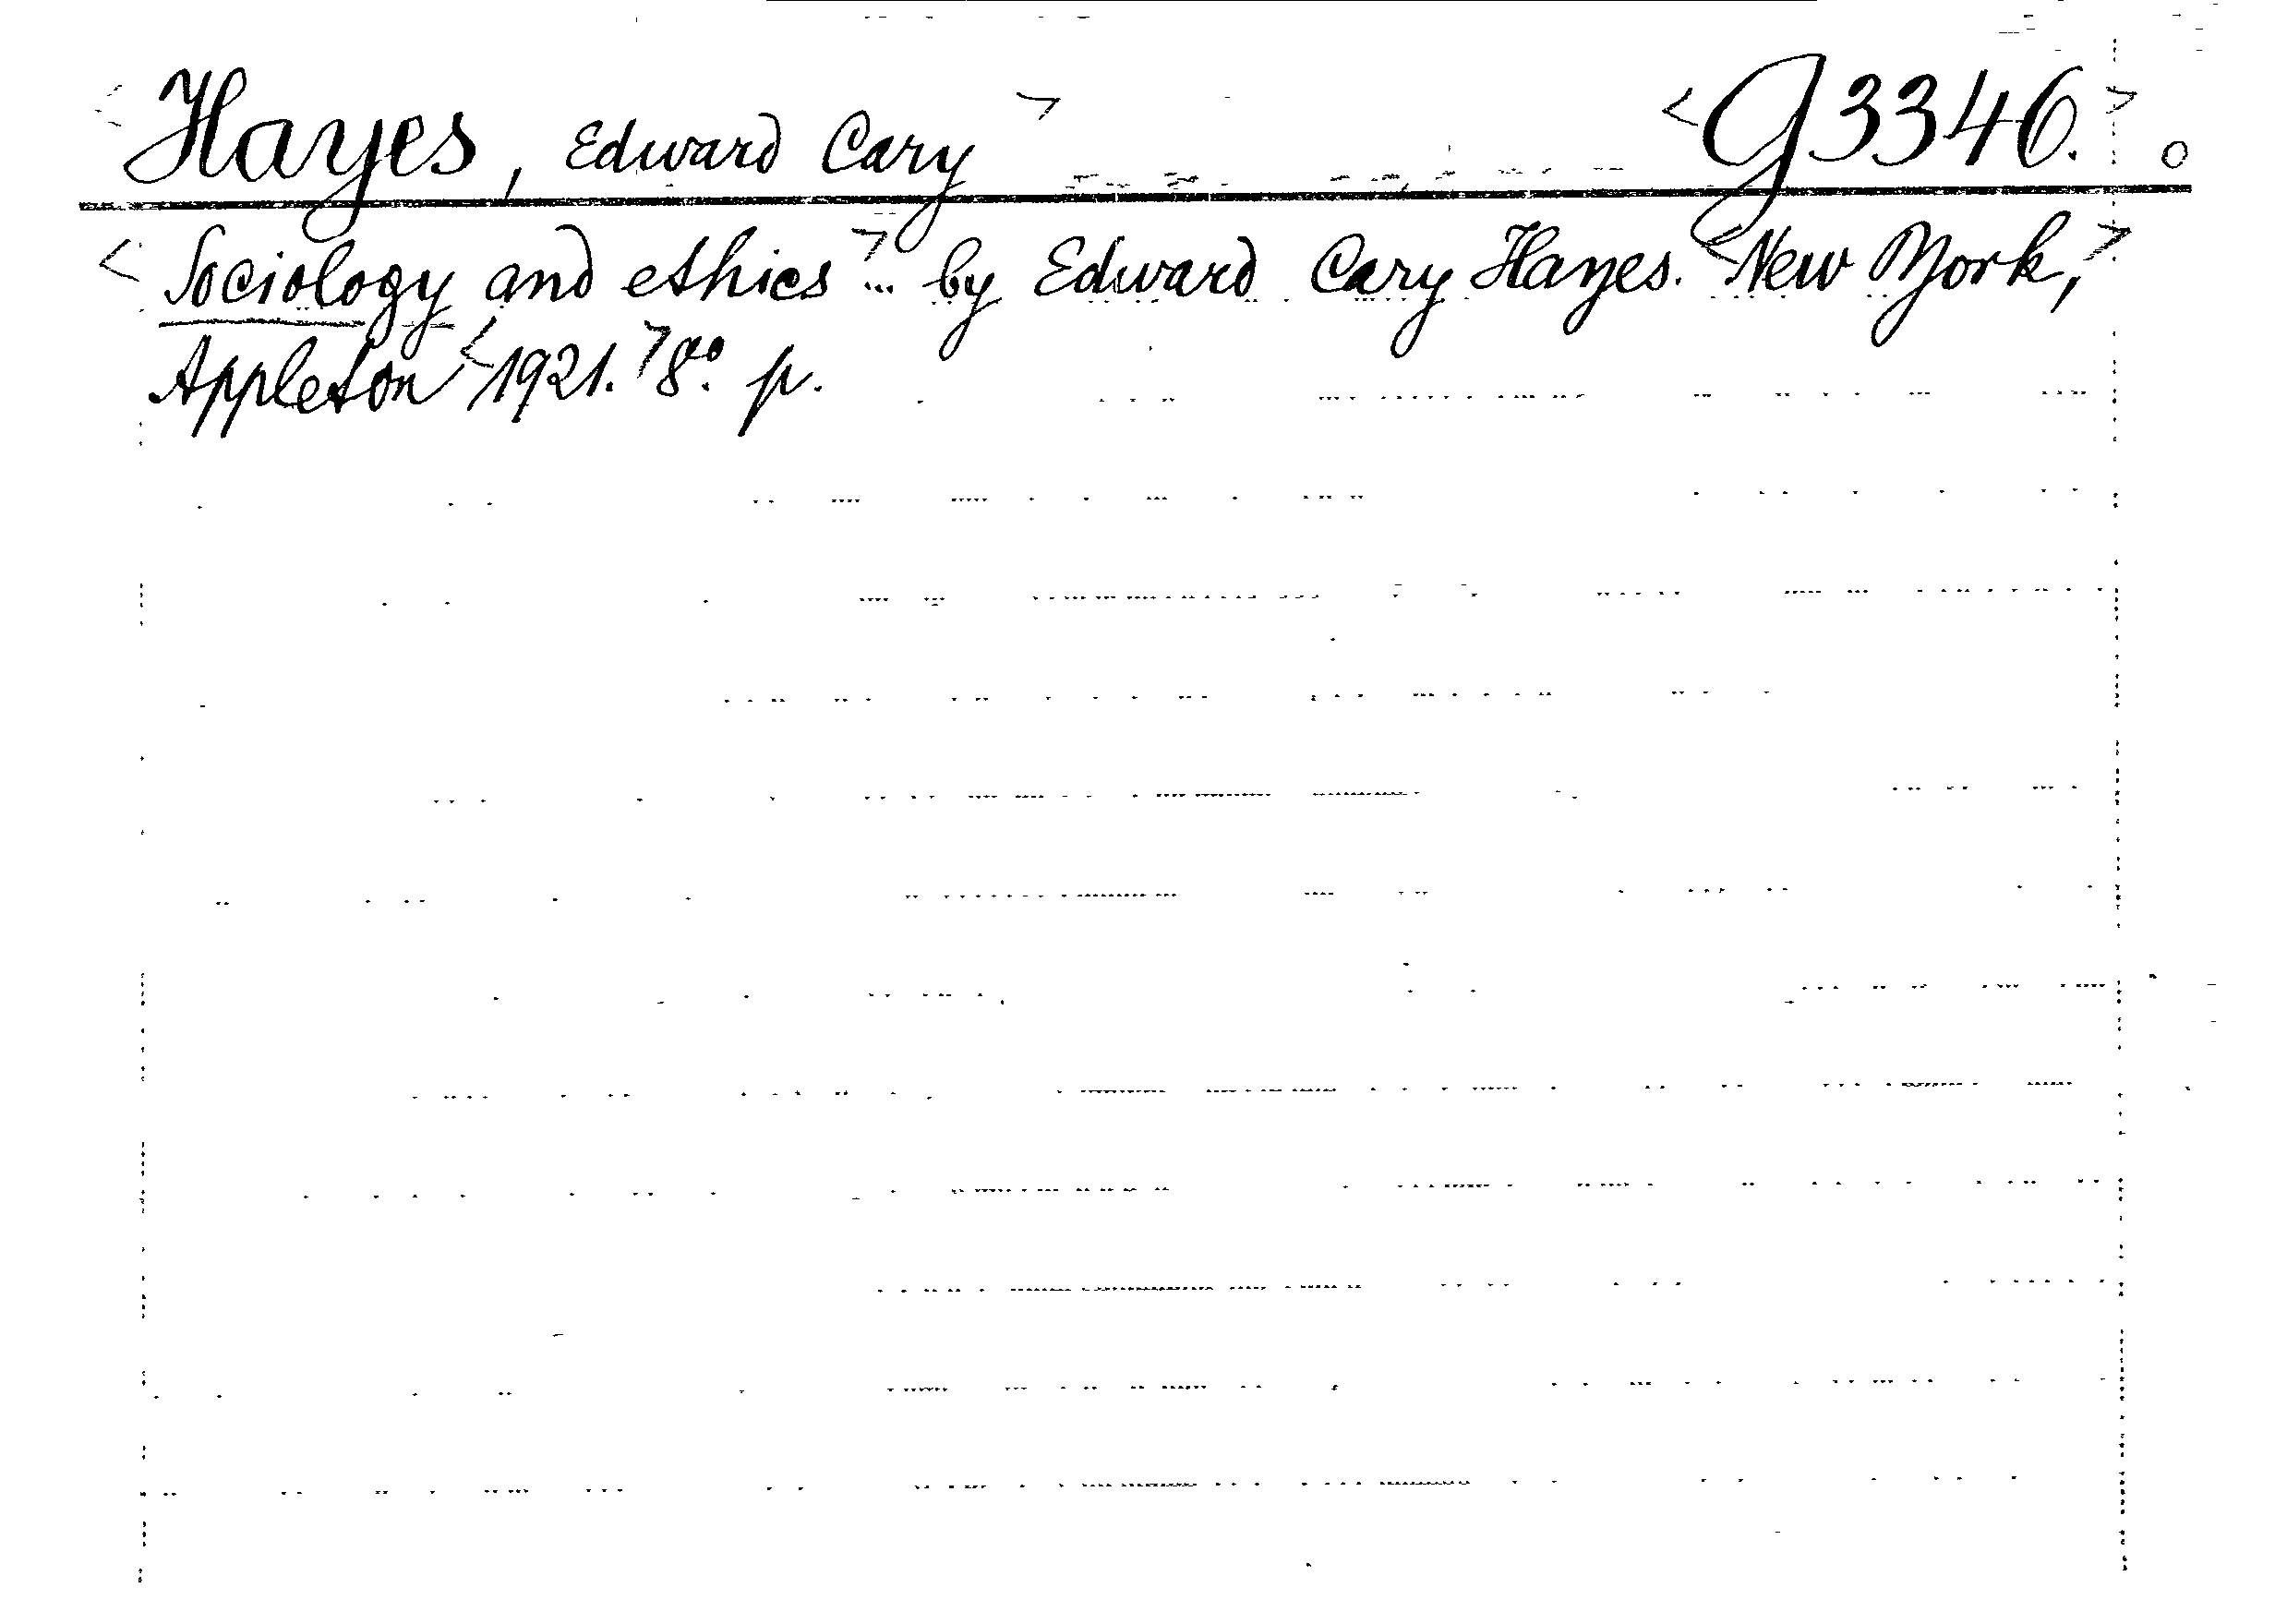 <Hayes, Edward Cary> <G3346.>
<Sociology and ethics> ... by Edward Cary Hayes. <New York,>
Appleton <1921.> 8o. p.